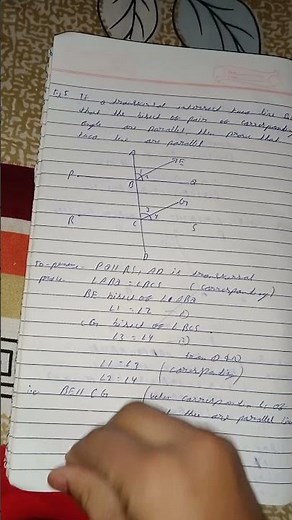 If a transversal intersect two line
that the bisect of pair of corresponding
angle are parallel then prove that
two line are parallel
A
E
P
B
Q
G
2
R
C
S
D
To prove PQ || RS, AD is transversal
prove ∠ABQ = ∠BCS (corresponding)
BE bisect of ∠ABQ
∠1 = ∠2
CG bisect of ∠BCS
∠3 = ∠4
from
∠1 = ∠3
∠2 = ∠4
BE || CG
of
are parallel